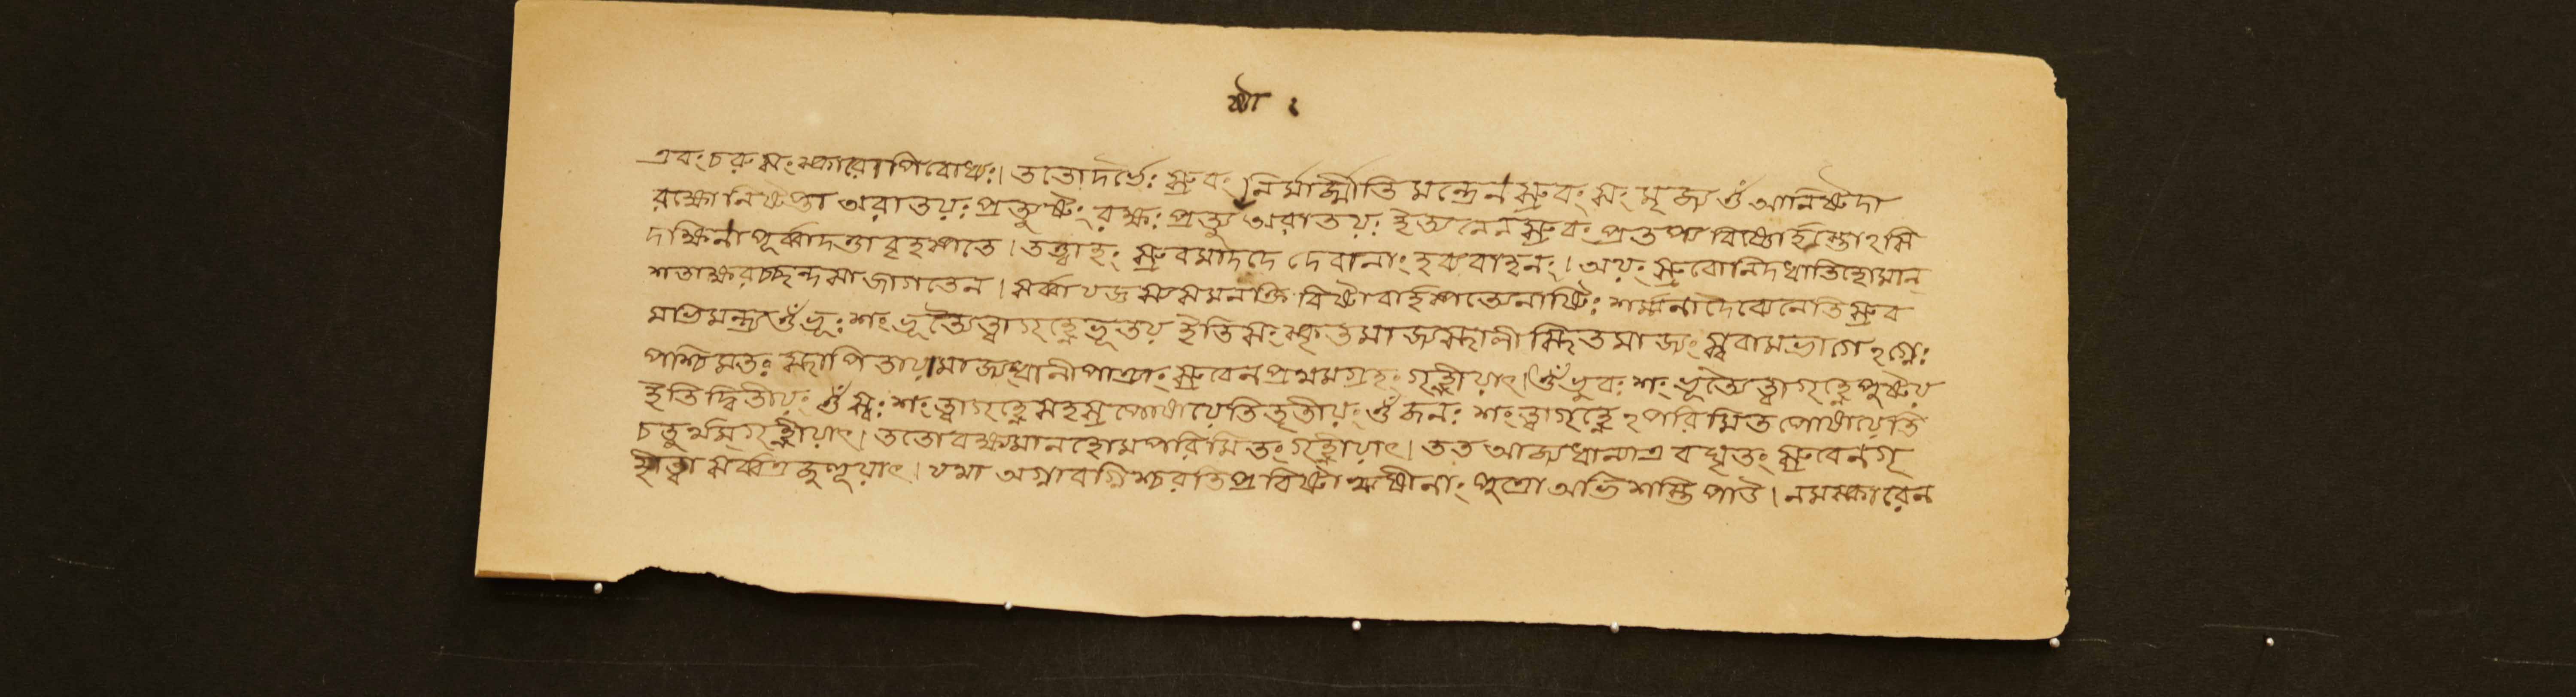 এবং চরুসংস্কারোপি বোধ্যঃ। ততো দর্ভৈঃ স্রুবং নির্মার্জ্মীতি মন্ত্রেন স্রুবং সংমৃজ্য ওঁ আনিষ্টদা
রক্ষো নিষ্টপ্তা অরাতয়ঃ প্রত্যুষ্টং রক্ষঃ প্রত্যু অরাতয়ঃ ইত্যনেন স্রুবং প্রতপ্য বিষ্ণোর্হস্তোঽসি
দক্ষিনা পূর্ব্বাদত্তা বৃহস্পতে। তত্ত্বাহং স্রুবমাদদে দেবানাং হব্যবাহনং। অয়ং স্রুবো নিদধাতি হোমান্
শতাক্ষরচ্ছন্দসা জাগতেন। সর্ব্বা যজ্ঞস্য সমনক্তি বিষ্টা বার্হস্পত্যেনাষ্টিঃ শর্ম্মনা দৈব্যেনেতি স্রুব
মভিমন্ত্র্য ওঁ ভূঃ শং ভূত্যৈ ত্বা গৃহ্নে ভূতয় ইতি সংস্কৃতমাজ্যস্থালীস্থিতমাজ্যং স্ববামভাগেঽগ্নেঃ
পশ্চিমতঃ স্থাপিতায়ামাজ্যধানীপাত্র্যাং স্রুবেন প্রথমগ্রহং গৃহ্নীয়াৎ। ওঁ ভুবঃ শং ভূত্যৈ ত্বা গৃহ্নে পুষ্টয়
ইতি দ্বিতীয়ং ওঁ স্বঃ শং ত্বা গৃহ্নে সহস্রপোষায়েতি তৃতীয়ং ওঁ জনঃ শং ত্বা গৃহ্নেঽপরিমিতপোষায়েতি
চতুর্থম্ গৃহ্নীয়াৎ। ততো বক্ষ্যমান হোমপরিমিতং গৃহ্নীয়াৎ। তত আজ্যধান্যা এব ঘৃতং স্রুবেন গৃ
হীত্বা সর্ব্বত্র জুহুয়াৎ। যথা অগ্নাবগ্নিশ্চরতি প্রবিষ্ট ঋষীনাং পুত্রো অভিশস্তি পাউ। নমস্কারেন